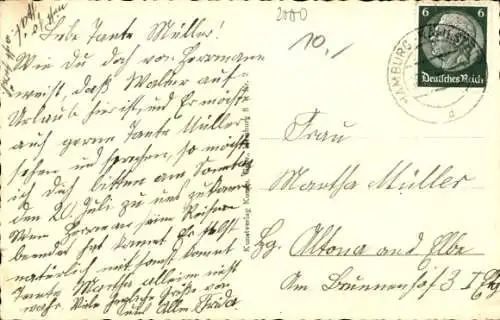 2000
10,-
Liebe Tante Müller!
Wie du doch von Herrmann
weist, daß Walter auf
Urlaub hier ist, und Er möchte
auch gerne Tante Müller
sehen und sprechen, so möchte
ich dich bitten am Sonntag
den 20. Juli zu uns zu kommen
Wenn Herrmann seine Reisen
beendet hat kommt Er selbst
natürlich mit sonst kommt
Tante Martha alleine nicht
wahr. Viele herzliche Grüße von
Euch Allen Frida
Kunstverlag
HAMBURG
d
6
Deutsches Reich
Frau
Martha Müller
Hbg. Altona and Elbe
Am Brunnenhof 3 I